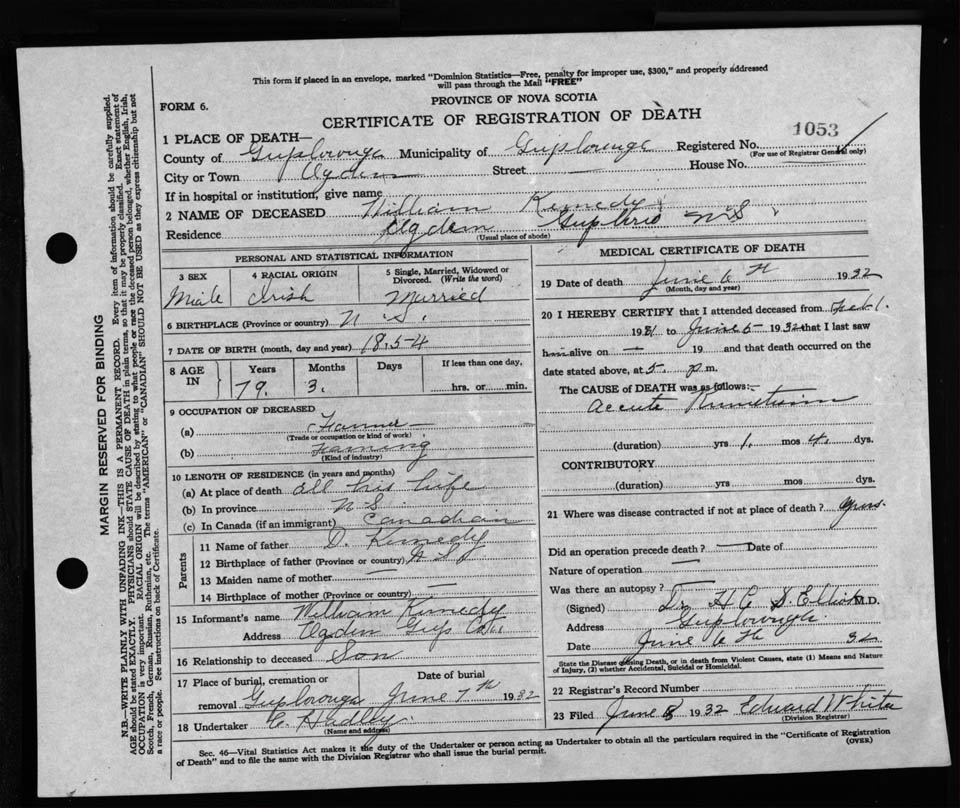 This form if placed in an envelope, marked "Dominion Statistics—Free, penalty for improper use, $300," and properly addressed
will pass through the Mail "FREE"
PROVINCE OF NOVA SCOTIA
FORM 6.
CERTIFICATE OF REGISTRATION OF DEATH
1053
1 PLACE OF DEATH—
County of Municipality of Registered No.
(For use of Registrar General only)
City or Town Street — House No.
If in hospital or institution, give name
2 NAME OF DECEASED William Kennedy
Residence Ogden N S
(Usual place of abode)
PERSONAL AND STATISTICAL INFORMATION
3 SEX 4 RACIAL ORIGIN 5 Single, Married, Widowed or Divorced. (Write the word)
Male Irish Married
6 BIRTHPLACE (Province or country) N S.
7 DATE OF BIRTH (month, day and year) 1854
8 AGE IN Years Months Days If less than one day,
79. 3. hrs. or min.
9 OCCUPATION OF DECEASED
(a) Farmer —
(Trade or occupation or kind of work)
(b) Farming
(Kind of industry)
10 LENGTH OF RESIDENCE (in years and months)
(a) At place of death all his life
(b) In province N S
(c) In Canada (if an immigrant) Canadian
Parents
11 Name of father D. Kennedy
12 Birthplace of father (Province or country) N S
13 Maiden name of mother —
14 Birthplace of mother (Province or country) —
15 Informant's name William Kennedy
Address Ogden Guys Co.
16 Relationship to deceased Son
17 Place of burial, cremation or removal Date of burial
June 7th 1932
18 Undertaker C. Hadley
(Name and address)
MEDICAL CERTIFICATE OF DEATH
19 Date of death June 6th 1932
(Month, day and year)
20 I HEREBY CERTIFY that I attended deceased from Feb 1.
19 to June 5 1932 that I last saw
h alive on — 19 and that death occurred on the
date stated above, at 5. p m.
The CAUSE OF DEATH was as follows:—
(duration) yrs 1. mos 4. dys.
CONTRIBUTORY
(duration) yrs mos dys.
21 Where was disease contracted if not at place of death?
Did an operation precede death? — Date of
Nature of operation —
Was there an autopsy?
(Signed) M.D.
Address
Date June 6th 32
State the Disease causing Death, or in death from Violent Causes, state (1) Means and Nature
of Injury, (2) whether Accidental, Suicidal or Homicidal.
22 Registrar's Record Number
23 Filed June 1932 Edward White
(Division Registrar)
Sec. 46—Vital Statistics Act makes it the duty of the Undertaker or person acting as Undertaker to obtain all the particulars required in the "Certificate of Registration
of Death" and to file the same with the Division Registrar who shall issue the burial permit. (OVER)
MARGIN RESERVED FOR BINDING
N.B.—WRITE PLAINLY WITH UNFADING INK—THIS IS A PERMANENT RECORD. Every item of information should be carefully supplied.
AGE should be stated EXACTLY. PHYSICIANS should STATE CAUSE OF DEATH in plain terms, so that it may be properly classified. Exact statement of
OCCUPATION is very important. RACIAL ORIGIN will be described by stating to what people or race the deceased person belonged, whether English, Irish,
Scotch, French, German, Russian, Ruthenian, etc. The terms "AMERICAN" or "CANADIAN" SHOULD NOT BE USED as they express citizenship but not
a race or people. See instructions on back of Certificate.